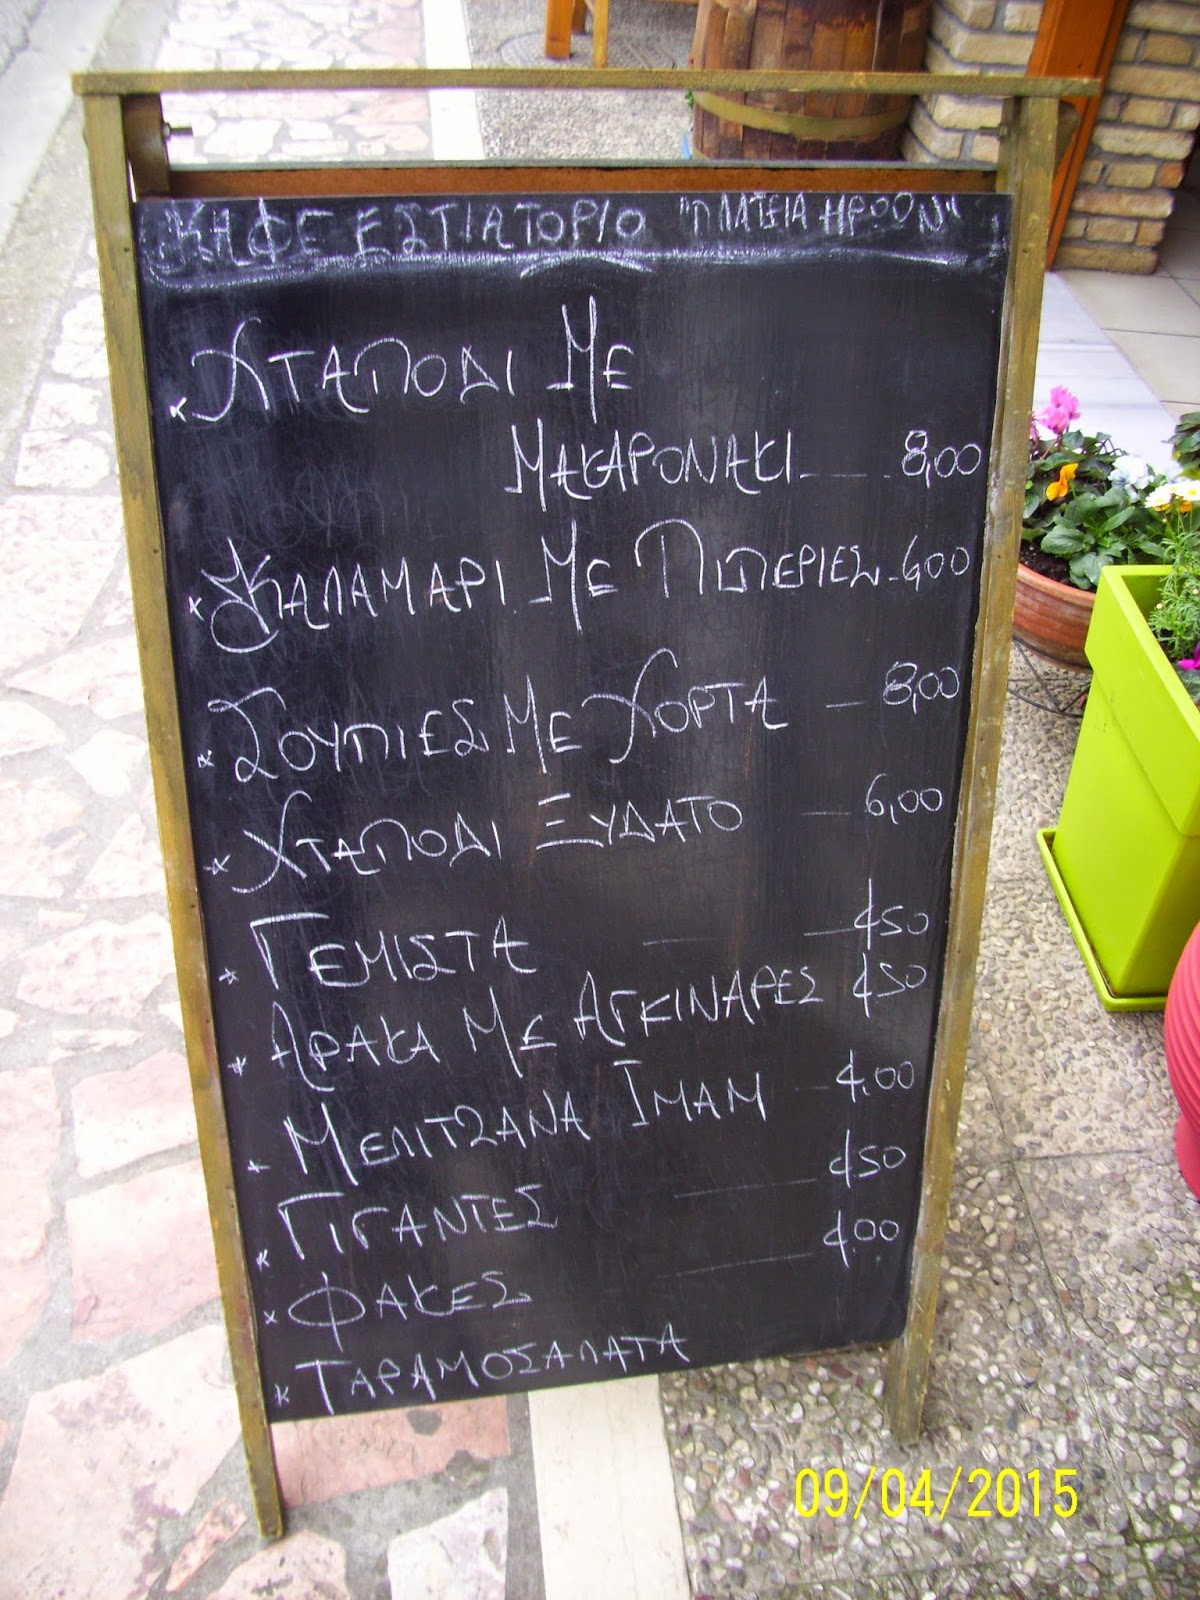 ΚΑΦΕ ΕΣΤΙΑΤΟΡΙΟ "ΠΛΑΤΕΙΑ ΗΡΩΩΝ"
* ΧΤΑΠΟΔΙ ΜΕ
ΜΑΚΑΡΟΝΑΚΙ 8,00
* ΚΑΛΑΜΑΡΙ ΜΕ ΠΙΠΕΡΙΕΣ 6,00
* ΣΟΥΠΙΕΣ ΜΕ ΧΟΡΤΑ 8,00
* ΧΤΑΠΟΔΙ ΞΥΔΑΤΟ 6,00
* ΓΕΜΙΣΤΑ 4,50
* ΑΡΑΚΑ ΜΕ ΑΓΚΙΝΑΡΕΣ 4,50
* ΜΕΛΙΤΖΑΝΑ ΙΜΑΜ 4,00
* ΓΙΓΑΝΤΕΣ 4,50
* ΦΑΚΕΣ 4,00
* ΤΑΡΑΜΟΣΑΛΑΤΑ
09/04/2015